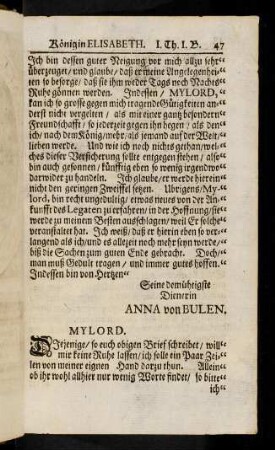 Königin ELISABETH. I. Th. I. B. 47
Ich bin dessen guter Neigung vor mich allzu sehr“
überzeuget/ und glaube/ daß er meine Angelegenhei-“
ten so besorge/ daß sie ihm weder Tags noch Nachts“
Ruhe gönnen werden. Indessen/ MYLORD,“
kan ich so grosse gegen mich tragende Gütigkeiten an-“
derst nicht vergelten/ als mit einer gantz besondern“
Freundschafft/ so jederzeit gegen ihn hegen/ als den“
ich/ nach dem König/ mehr/ als jemand auf der Welt/“
lieben werde. Und wie ich noch nichts gethan/ wel-“
ches dieser Versicherung sollte entgegen stehen/ also“
bin auch gesonnen/ künfftig eben so wenig irgendwo“
darwider zu handeln. Ich glaube/ er werde hierein“
nicht den geringen Zweiffel setzen. Ubrigens/ My-“
lord, bin recht ungedultig/ etwas neues von der An-“
kunfft des Legaten zu erfahren/ in der Hoffnung/ sie“
werde zu meinem Besten ausschlagen/ weil Er solche“
veranstaltet hat. Ich weiß/ daß er hierin eben so ver-“
langend als ich/ und es allezeit noch mehr seyn werde/“
biß die Sachen zum guten Ende gebracht. Doch“
man muß Gedult tragen/ und immer gutes hoffen.“
Indessen bin von Hertzen“
Seine demühtigste
Dienerin
ANNA von BULEN.
MYLORD.
DJejenige/ so euch obigen Brief schreibet/ will“
mir keine Ruhe lassen/ ich solle ein Paar Zei-“
len von meiner eignen Hand darzu thun. Allein“
ob ihr wohl allhier nur wenig Worte findet/ so bitte“
ich“